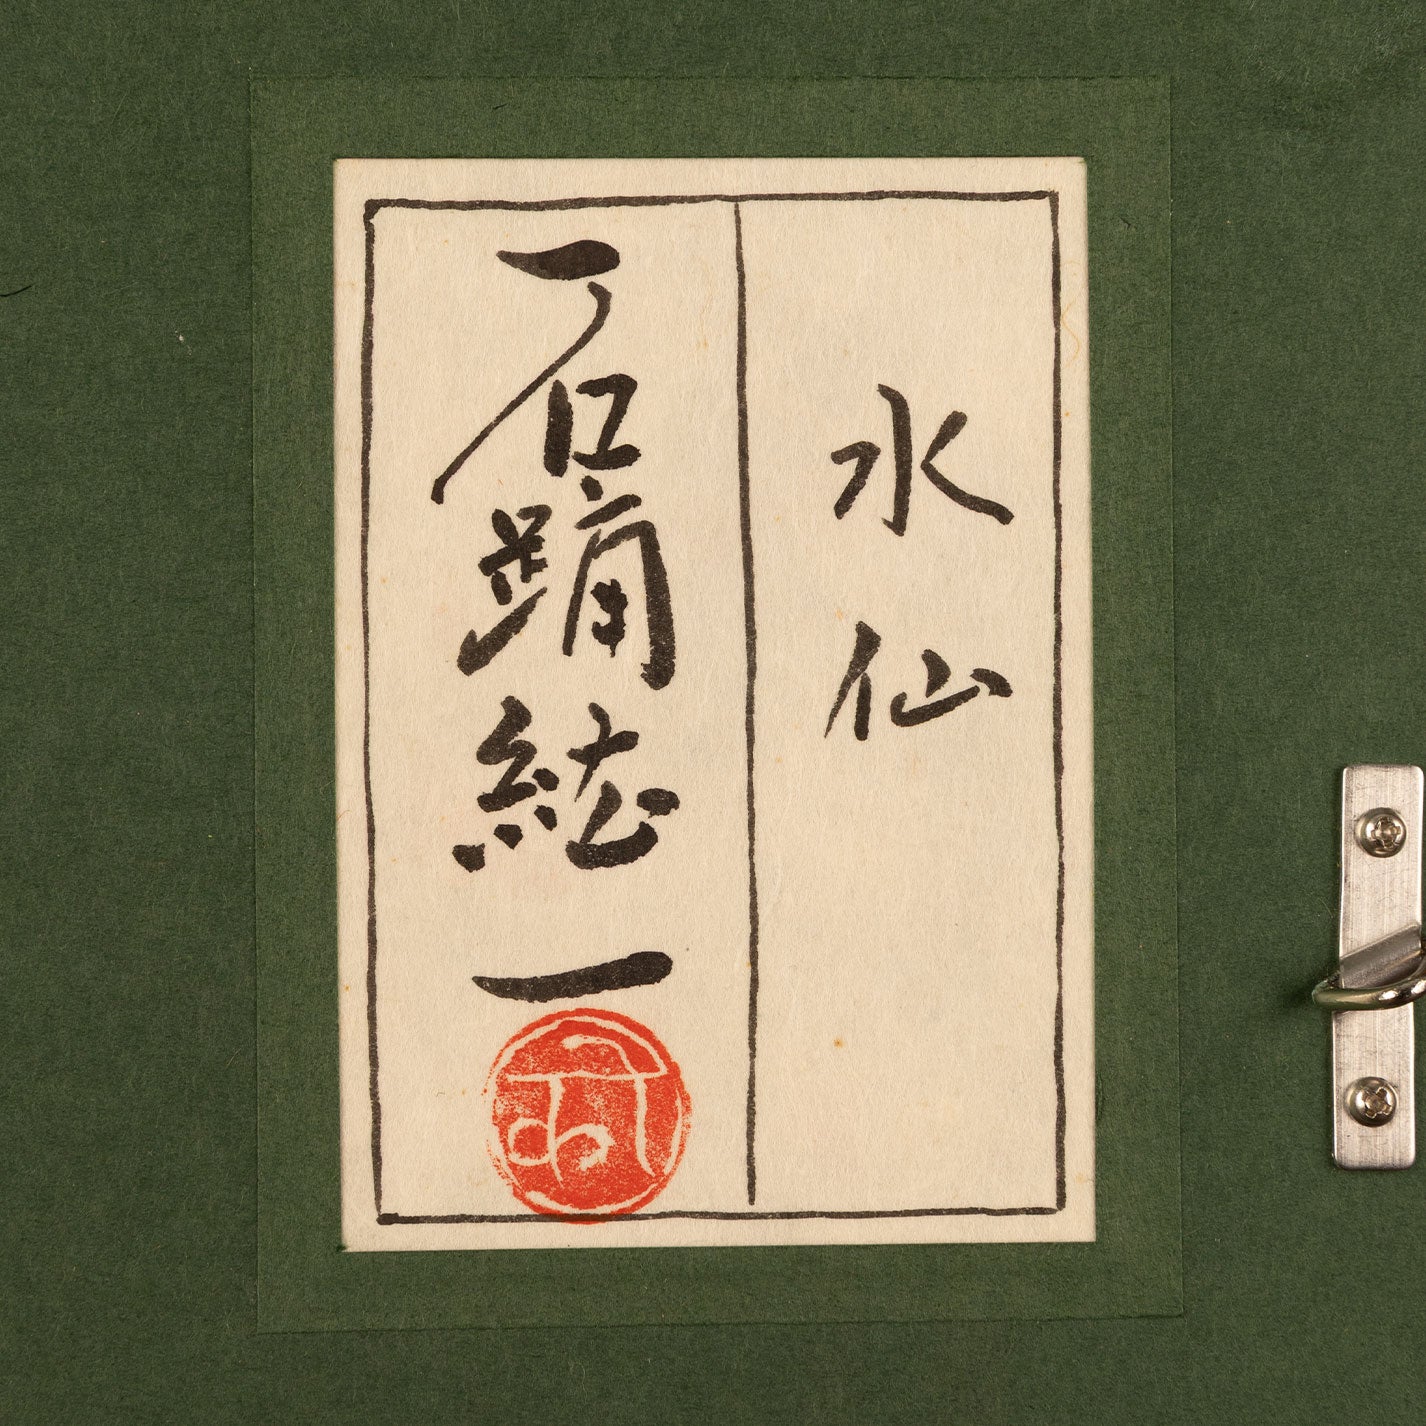 水仙
石踊紘一